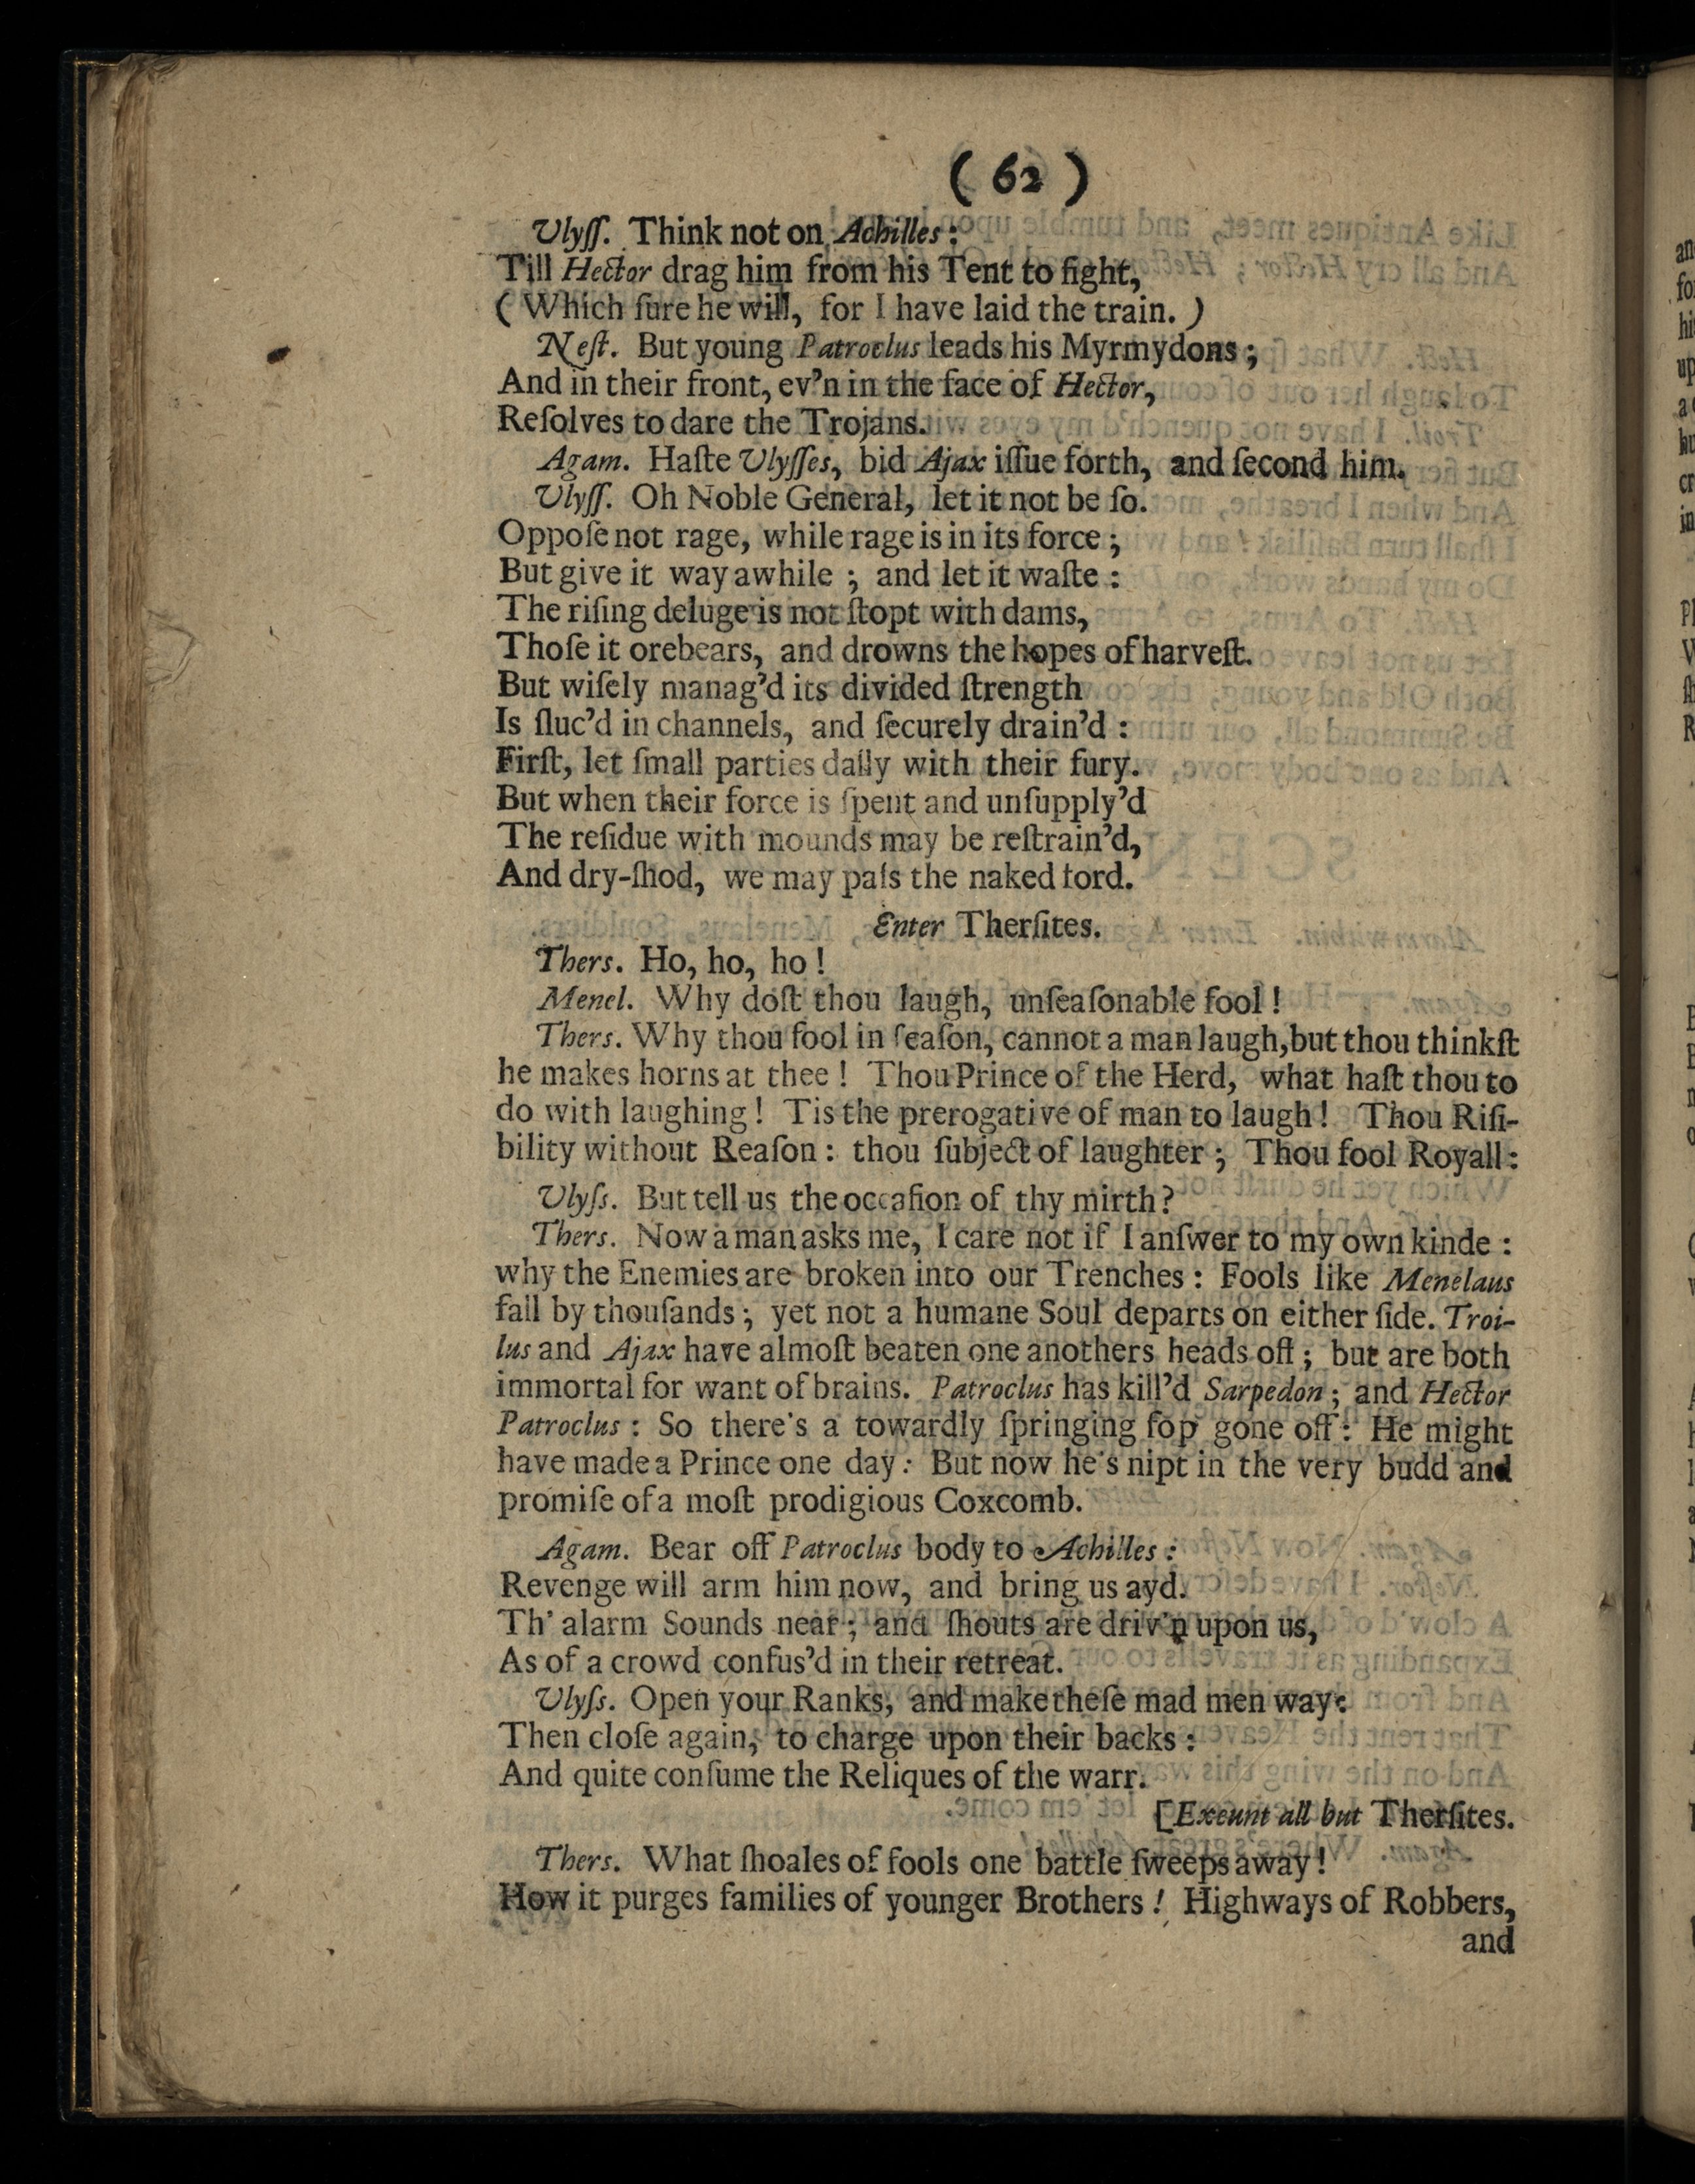 ( 62 )
Ulyſſ. Think not on Achilles:
Till Hector drag him from his Tent to fight,
( Which ſure he will, for I have laid the train. )
Neſt. But young Patroclus leads his Myrmydons;
And in their front, ev'n in the face of Hector,
Reſolves to dare the Trojans.
Agam. Haſte Ulyſſes, bid Ajax iſſue forth, and ſecond him.
Ulyſſ. Oh Noble General, let it not be ſo.
Oppoſe not rage, while rage is in its force;
But give it way awhile; and let it waſte:
The riſing deluge is not ſtopt with dams,
Thoſe it orebears, and drowns the hopes of harveſt.
But wiſely manag'd its divided ſtrength
Is ſluc'd in channels, and ſecurely drain'd:
Firſt, let ſmall parties dally with their fury.
But when their force is ſpent and unſupply'd
The reſidue with mounds may be reſtrain'd,
And dry-ſhod, we may paſs the naked ford.
Enter Therſites.
Thers. Ho, ho, ho!
Menel. Why doſt thou laugh, unſeaſonable fool!
Thers. Why thou fool in ſeaſon, cannot a man laugh, but thou thinkſt
he makes horns at thee! Thou Prince of the Herd, what haſt thou to
do with laughing! Tis the prerogative of man to laugh! Thou Riſi-
bility without Reaſon: thou ſubject of laughter; Thou fool Royall:
Ulyſs. But tell us the occaſion of thy mirth?
Thers. Now a man asks me, I care not if I anſwer to my own kinde:
why the Enemies are broken into our Trenches: Fools like Menelaus
fall by thouſands; yet not a humane Soul departs on either ſide. Troi-
lus and Ajax have almoſt beaten one anothers heads off; but are both
immortal for want of brains. Patroclus has kill'd Sarpedon; and Hector
Patroclus: So there's a towardly ſpringing fop gone off: He might
have made a Prince one day: But now he's nipt in the very budd and
promiſe of a moſt prodigious Coxcomb.
Agam. Bear off Patroclus body to Achilles:
Revenge will arm him now, and bring us ayd.
Th' alarm Sounds near; and ſhouts are driv'n upon us,
As of a crowd confus'd in their retreat.
Ulyſs. Open your Ranks, and make theſe mad men way:
Then cloſe again, to charge upon their backs:
And quite conſume the Reliques of the warr.
[Exeunt all but Therſites.
Thers. What ſhoales of fools one battle ſweeps away!
How it purges families of younger Brothers! Highways of Robbers,
and